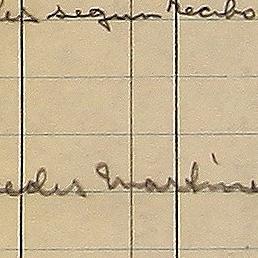 les segun recibo
edes Martine